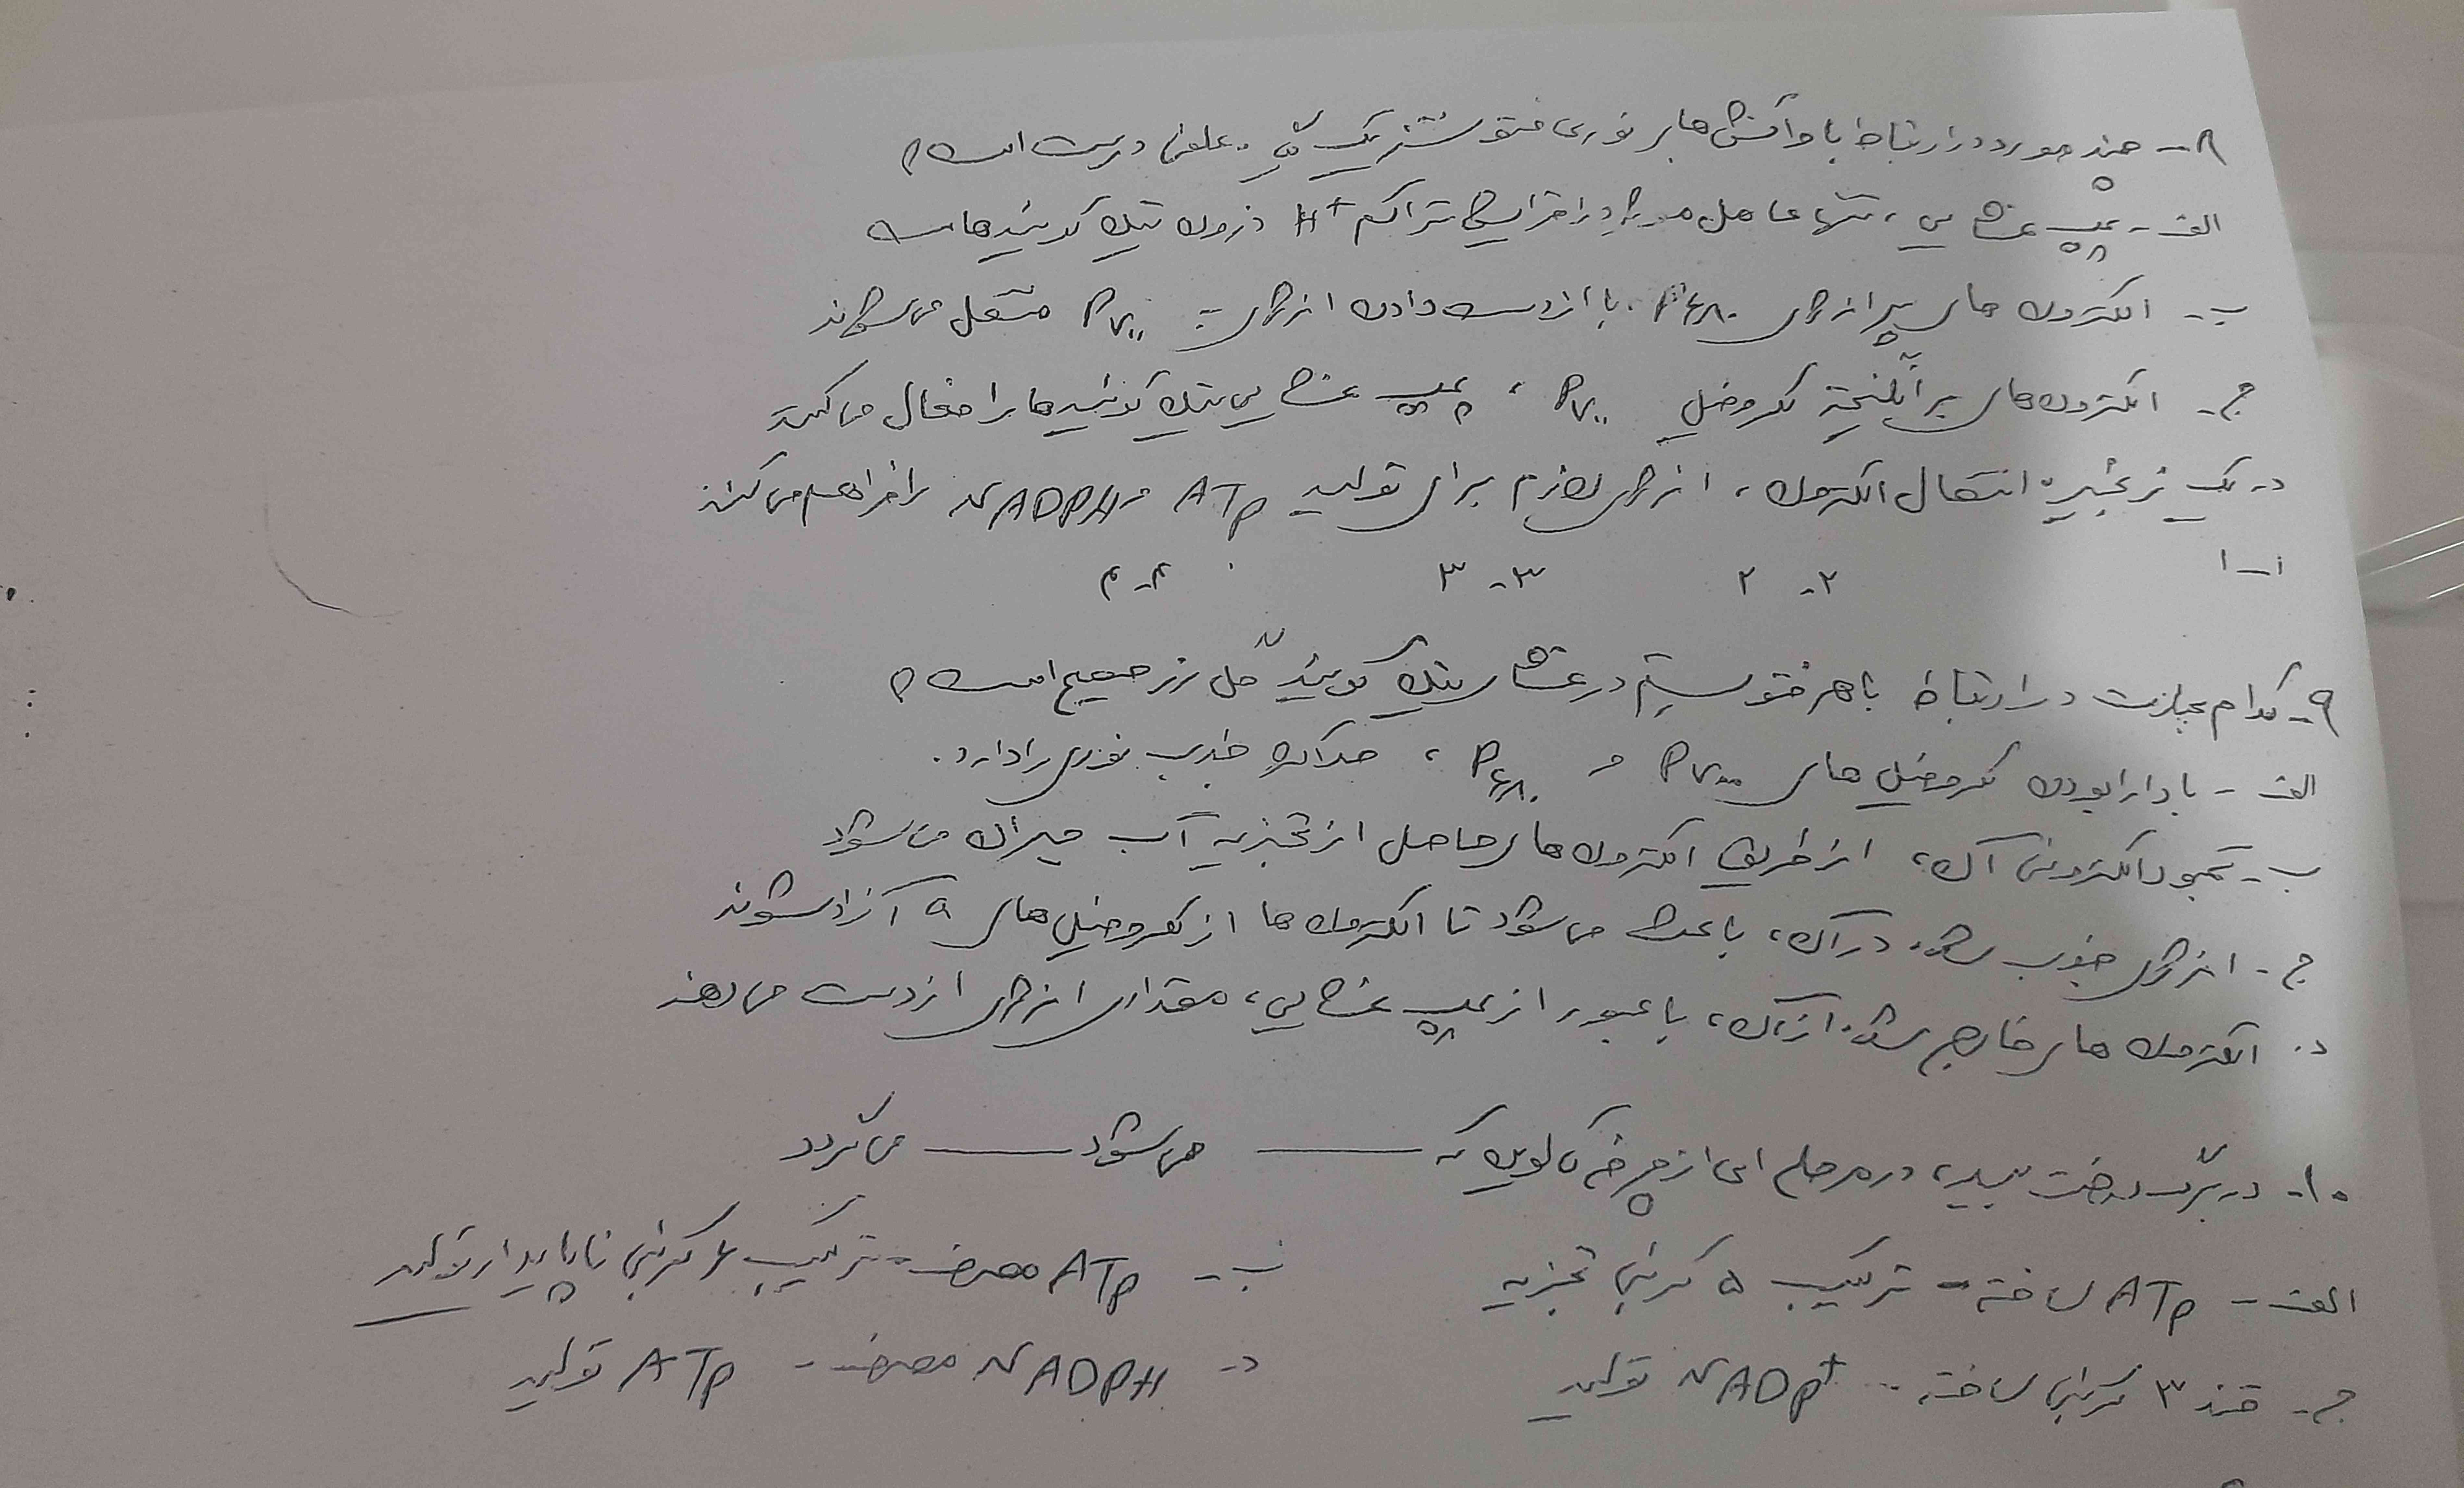 ۸- چند مورد در ارتباط با واکنش های نوری فتوسنتز یک گیاه علفی درست است؟
الف- پمپ غشایی، تنها عامل موثر در افزایش تراکم H+ درون تیلاکوئیدهاست
ب- الکترون های پر انرژی P۶۸۰، با از دست دادن انرژی به P۷۰۰ منتقل می شوند
ج- الکترون های برانگیختۀ کلروفیل P۷۰۰، پمپ غشایی تیلاکوئیدها را فعال می کنند
د- یک زنجیرۀ انتقال الکترون، انرژی لازم برای تولید ATP و NADPH را فراهم می کند
۱-۱ ۲-۲ ۳-۳ ۴-۴
۹- کدام عبارت در ارتباط با هر فتوسیستم در غشاء تیلاکوئید گل رز صحیح است؟
الف- با دارا بودن کلروفیل های P۷۰۰ و P۶۸۰، حداکثر جذب نوری را دارد.
ب- کمبود الکترونی آن، از طریق الکترون های حاصل از تجزیه آب جبران می شود
ج- انرژی جذب شده در آن، باعث می شود تا الکترون ها از کلروفیل های a آزاد شوند
د- الکترون های خارج شده از آن، با عبور از پمپ غشایی، مقداری انرژی از دست می دهند
۱۰- در برگ درخت بید، در مرحله ای از چرخه کالوین که ـــــ می شود ـــــ می گردد
الف- ATP ساخته - ترکیب ۵ کربنی تجزیه ب- ATP مصرف - ترکیب ۶ کربنی ناپایدار تولید
ج- قند ۳ کربنی ساخته - NADP+ تولید د- NADPH مصرف - ATP تولید